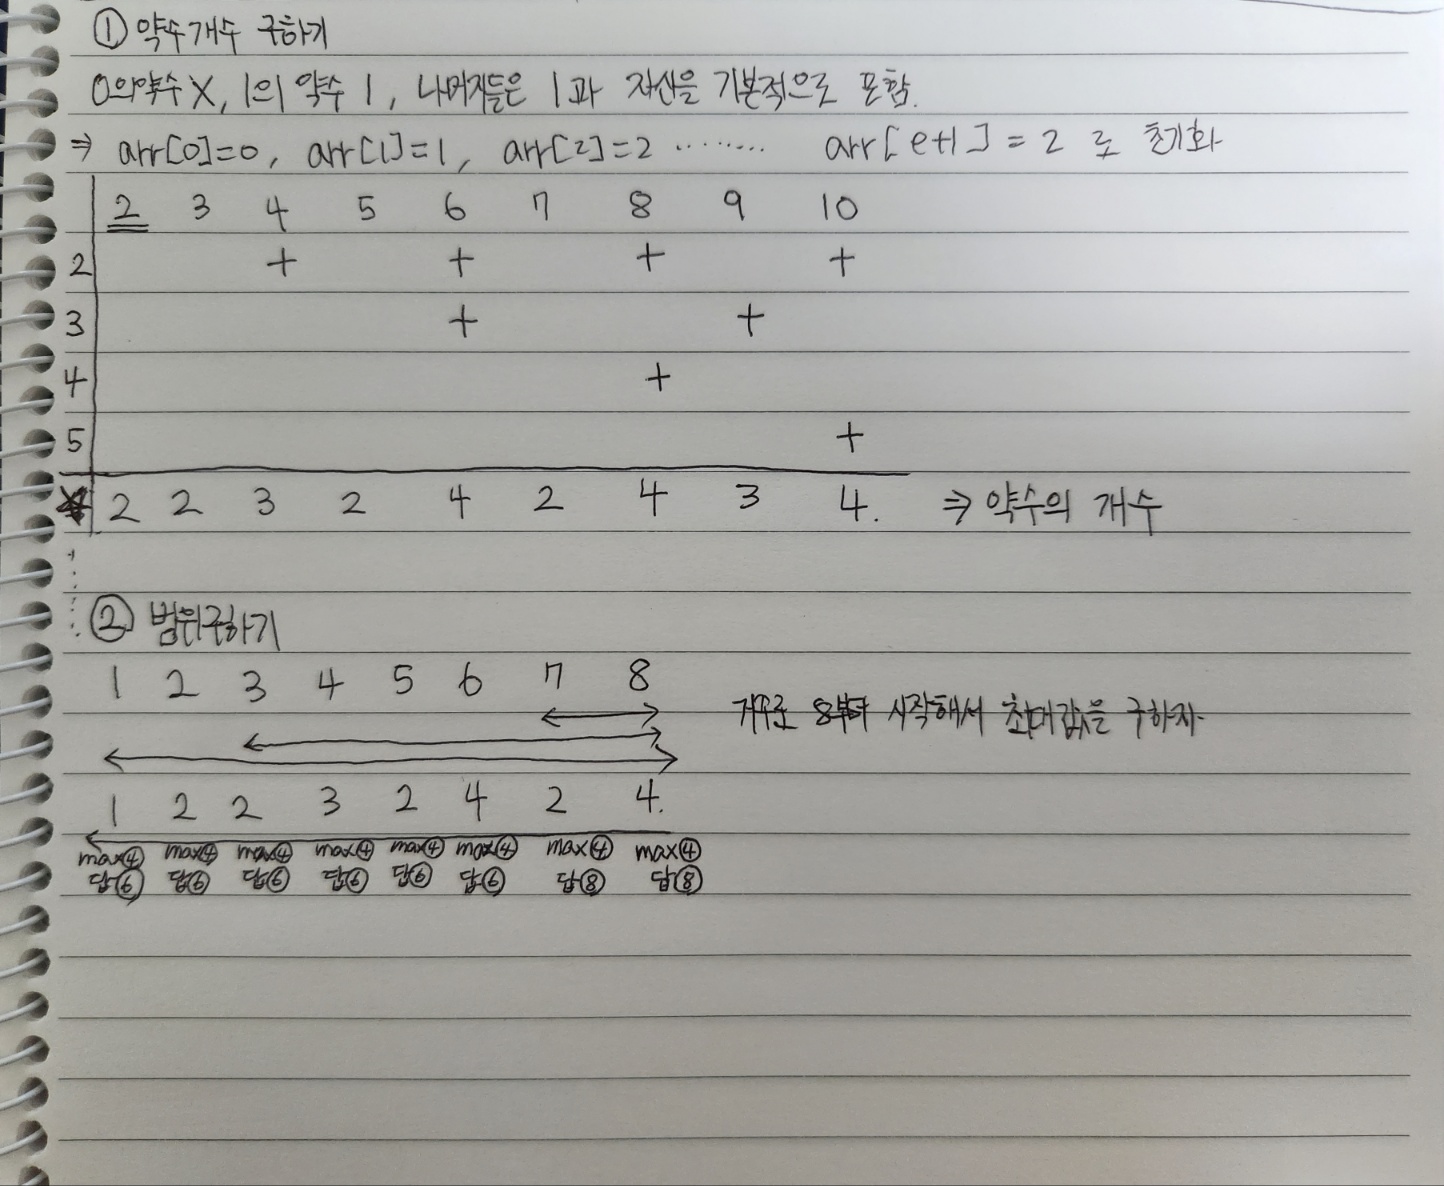 ① 약수개수 구하기
0의약수X, 1의 약수 1, 나머지들은 1과 자신을 기본적으로 포함.
⇒ arr[0]=0, arr[1]=1, arr[2]=2 ········ arr[e+1]=2 로 초기화
2 3 4 5 6 7 8 9 10
2 + + + +
3 + +
4 +
5 +
★ 2 2 3 2 4 2 4 3 4. ⇒ 약수의 개수
② 범위구하기
1 2 3 4 5 6 7 8
거꾸로 8부터 시작해서 최대값을 구하자
1 2 2 3 2 4 2 4.
max④ max④ max④ max④ max④ max④ max④ max④
답⑥ 답⑥ 답⑥ 답⑥ 답⑥ 답⑥ 답⑧ 답⑧